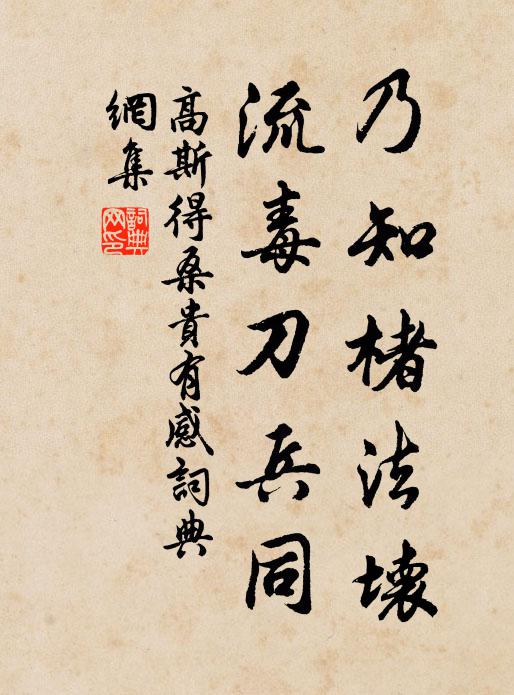 乃知楮法壞
流毒刀兵同
高斯得桑貴有感詞典
網集
詞典網印